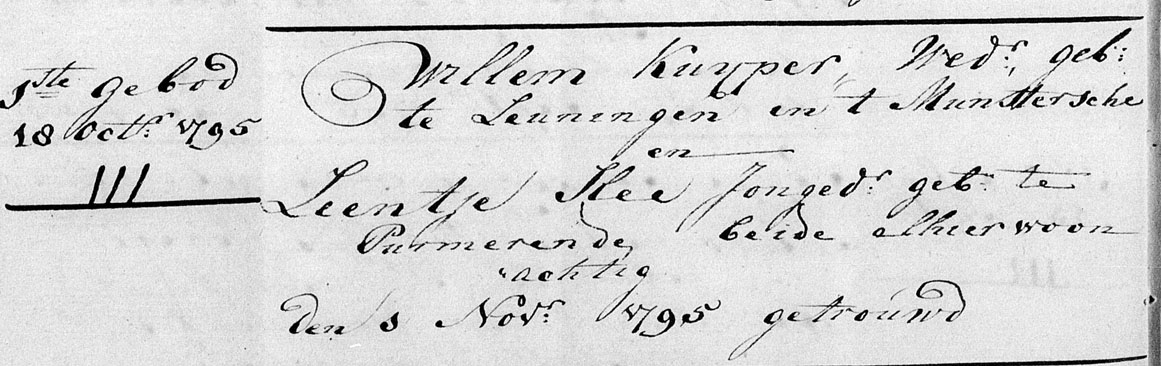 1ste gebod
18 Octr. 1795
III
Willem Kuyper, Wedr. geb:
te Leuningen in t Munstersche
en
Leentje Slee Jongedr. geb. te
Purmerende, beide alhier woon
achtig
den 1 Novr. 1795 getrouwd